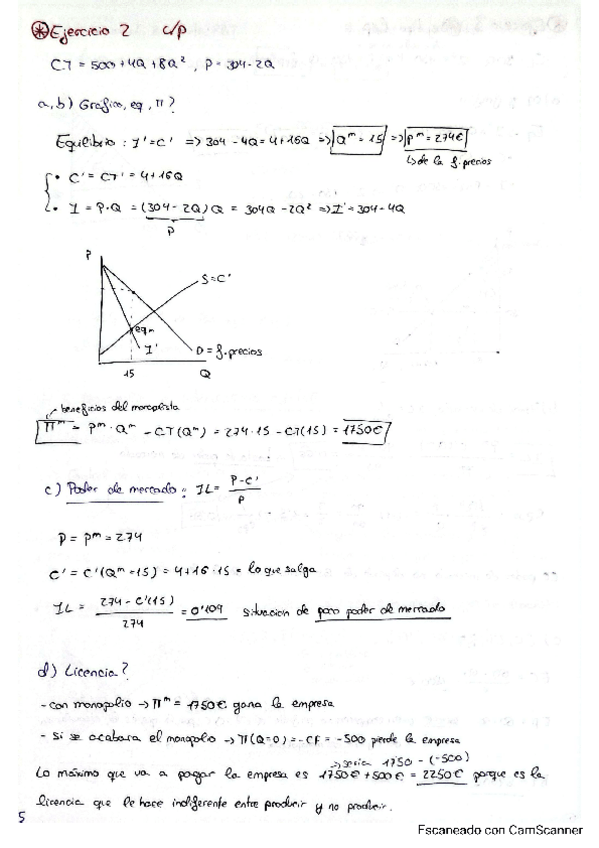 ⊛ Ejercicio 2 c/p
CT = 500 + 4Q + 8Q², P = 304 - 2Q
a, b) Grafico, eq, π?
Equilibrio : I' = C' => 304 - 4Q = 4 + 16Q => Qᵐ = 15 => pᵐ = 274€
↳ de la f. precios
• C' = CT' = 4 + 16Q
• I = P·Q = (304 - 2Q) Q = 304Q - 2Q² => I' = 304 - 4Q
P
P
S = C'
eqm
I'
D = f. precios
15
Q
beneficios del monopolista
πᵐ = pᵐ · Qᵐ - CT(Qᵐ) = 274·15 - CT(15) = 1750€
c) Poder de mercado : IL = P - C' / P
P = pᵐ = 274
C' = C'(Qᵐ=15) = 4 + 16·15 = lo que salga
IL = 274 - C'(15) / 274 = 0'109 situacion de poco poder de mercado
d) Licencia?
- con monopolio → πᵐ = 1750€ gana la empresa
- si se acabara el monopolo → π(Q=0) = -CF = -500 pierde la empresa
→ seria 1750 - (-500)
Lo máximo que va a pagar la empresa es 1750€ + 500€ = 2250€ porque es la
licencia que le hace indiferente entre producir y no producir.
5
Escaneado con CamScanner